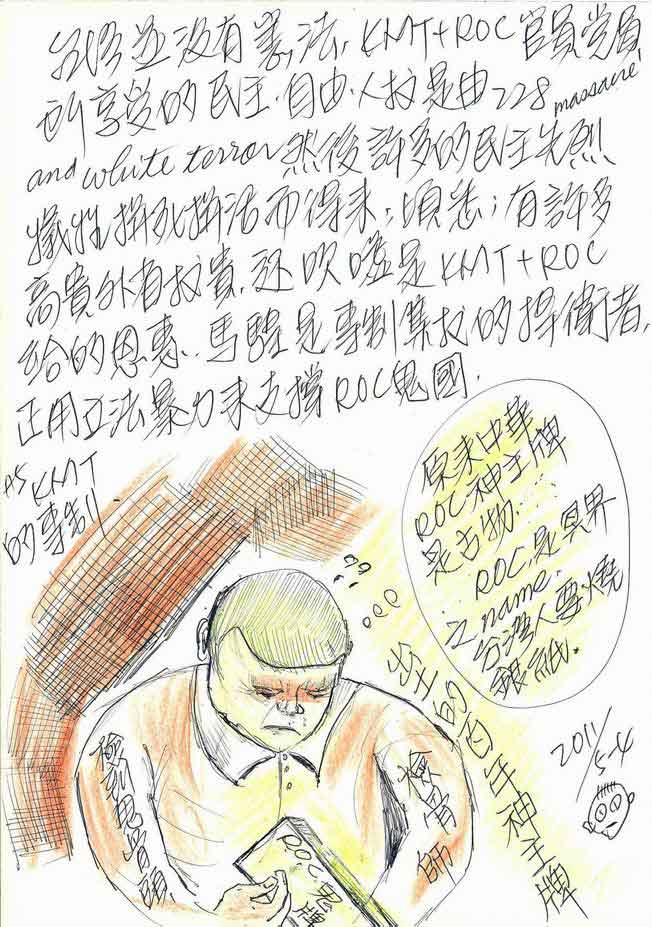 並沒有憲法, KMT+ROC 官員党員
所享受的民主.自由.人权是由228 massacre!
and white terror 然後許多的民主先烈
犠牲拼死拼活而得来,有許多
高貴外省权貴,还是KMT+ROC
給的恩惠.馬是專制集权的捍衛者,
正用立法暴力来支撐ROC鬼國.
KMT
的專制
原来中華
ROC神主牌
是古物..
ROC.是冥界
之name.
台灣人要燒
銀紙.
出土的百年神主牌
2011/5-4
撿骨師
ROC.鬼牌